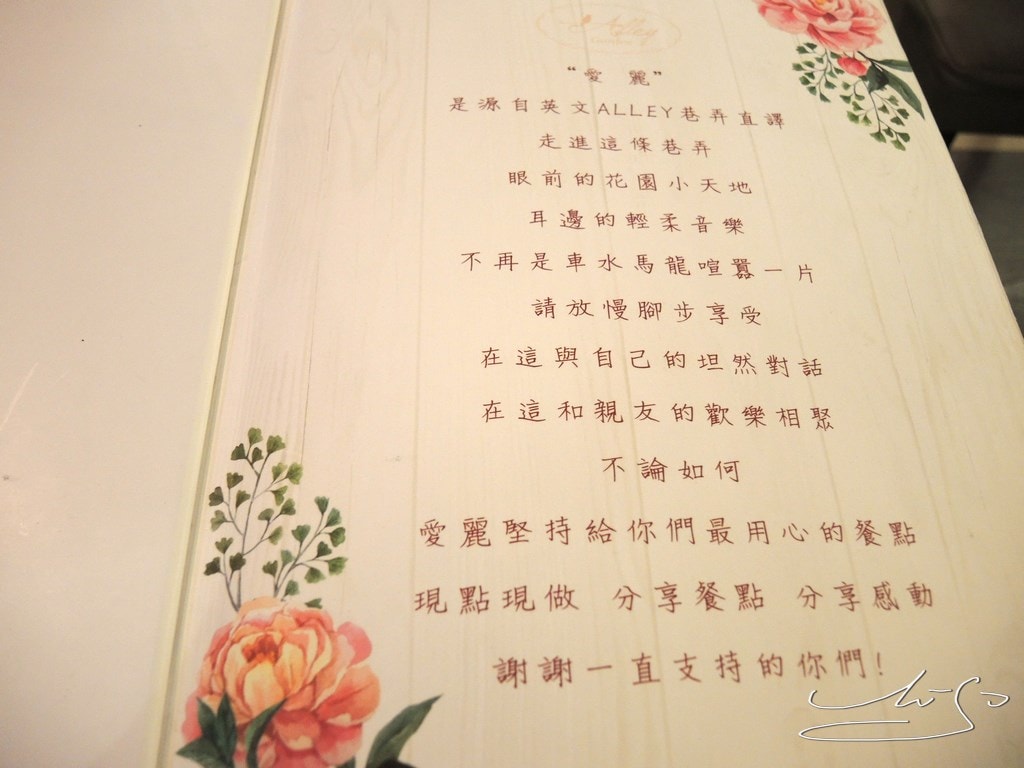 “愛 麗”
是源自英文ALLEY巷弄直譯
走進這條巷弄
眼前的花園小天地
耳邊的輕柔音樂
不再是車水馬龍喧囂一片
請放慢腳步享受
在這與自己的坦然對話
在這和親友的歡樂相聚
不論如何
愛麗堅持給你們最用心的餐點
現點現做 分享餐點 分享感動
謝謝一直支持的你們!